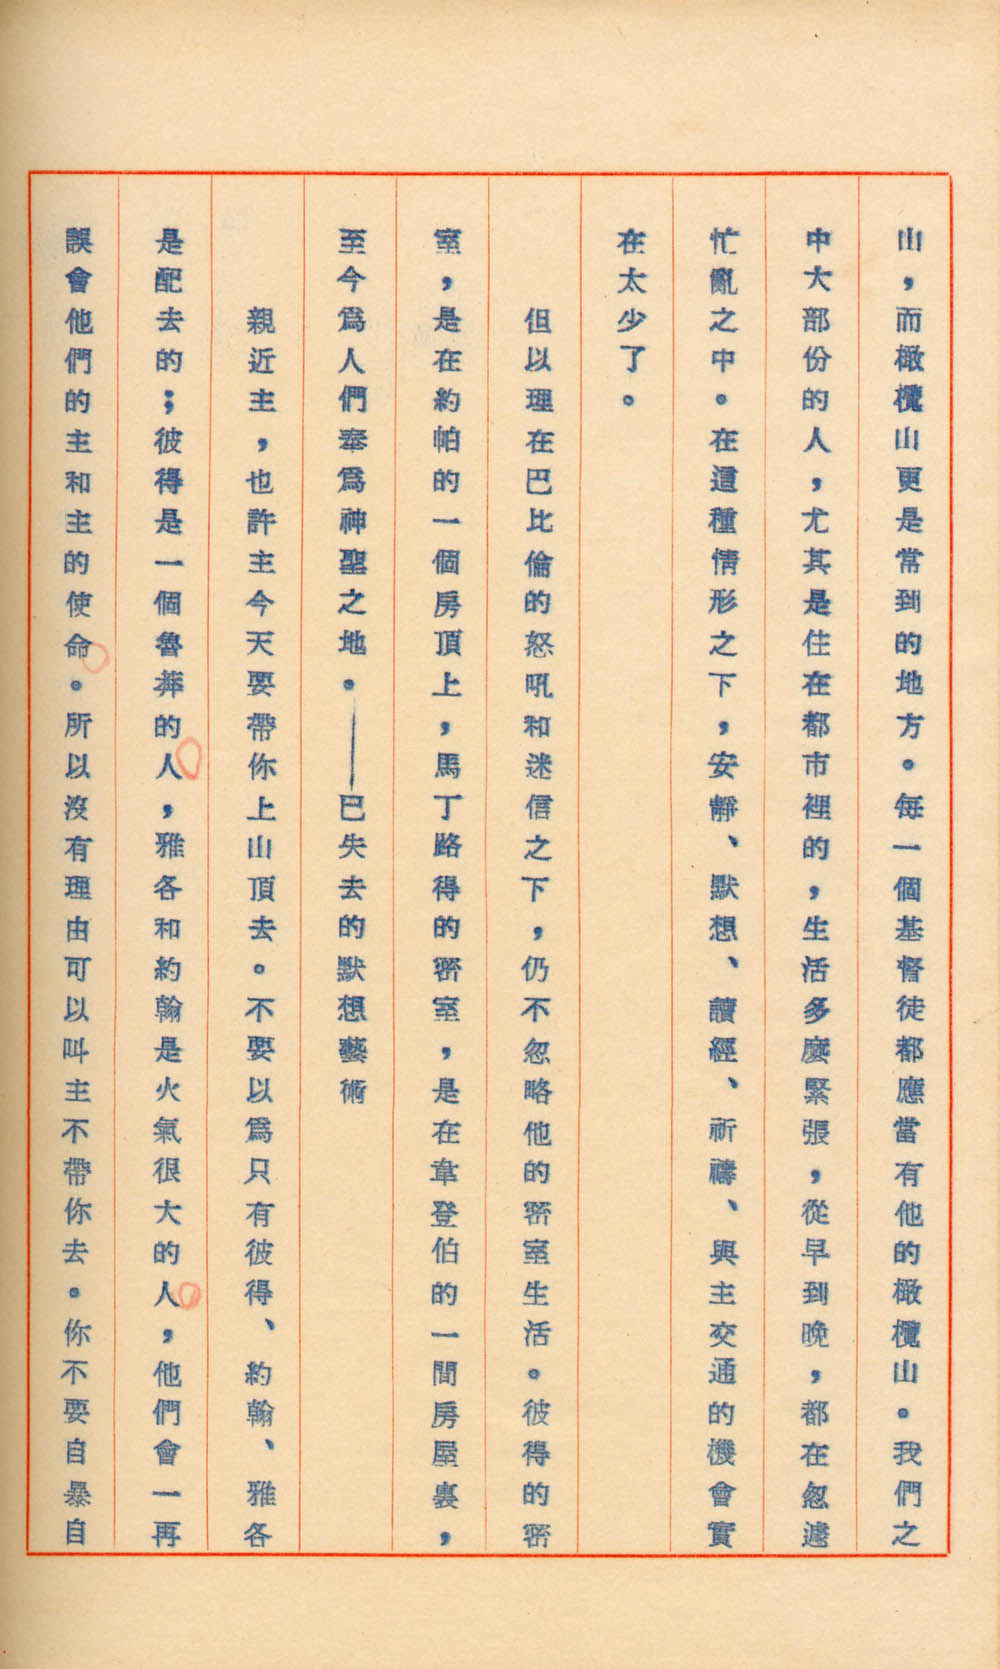 山，而橄欖山更是常到的地方。每一個基督徒都應當有他的橄欖山。我們之
中大部份的人，尤其是住在都市裡的，生活多麼緊張，從早到晚，都在忽遽
忙亂之中。在這種情形之下，安靜、默想、讀經、祈禱、與主交通的機會實
在太少了。
但以理在巴比倫的怒吼和迷信之下，仍不忽略他的密室生活。彼得的密
室，是在約帕的一個房頂上，馬丁路得的密室，是在韋登伯的一間房屋裏，
至今為人們奉為神聖之地。——已失去的默想藝術
親近主，也許主今天要帶你上山頂去。不要以為只有彼得、約翰、雅各
是配去的；彼得是一個魯莽的人，雅各和約翰是火氣很大的人，他們會一再
誤會他們的主和主的使命。所以沒有理由可以叫主不帶你去。你不要自暴自